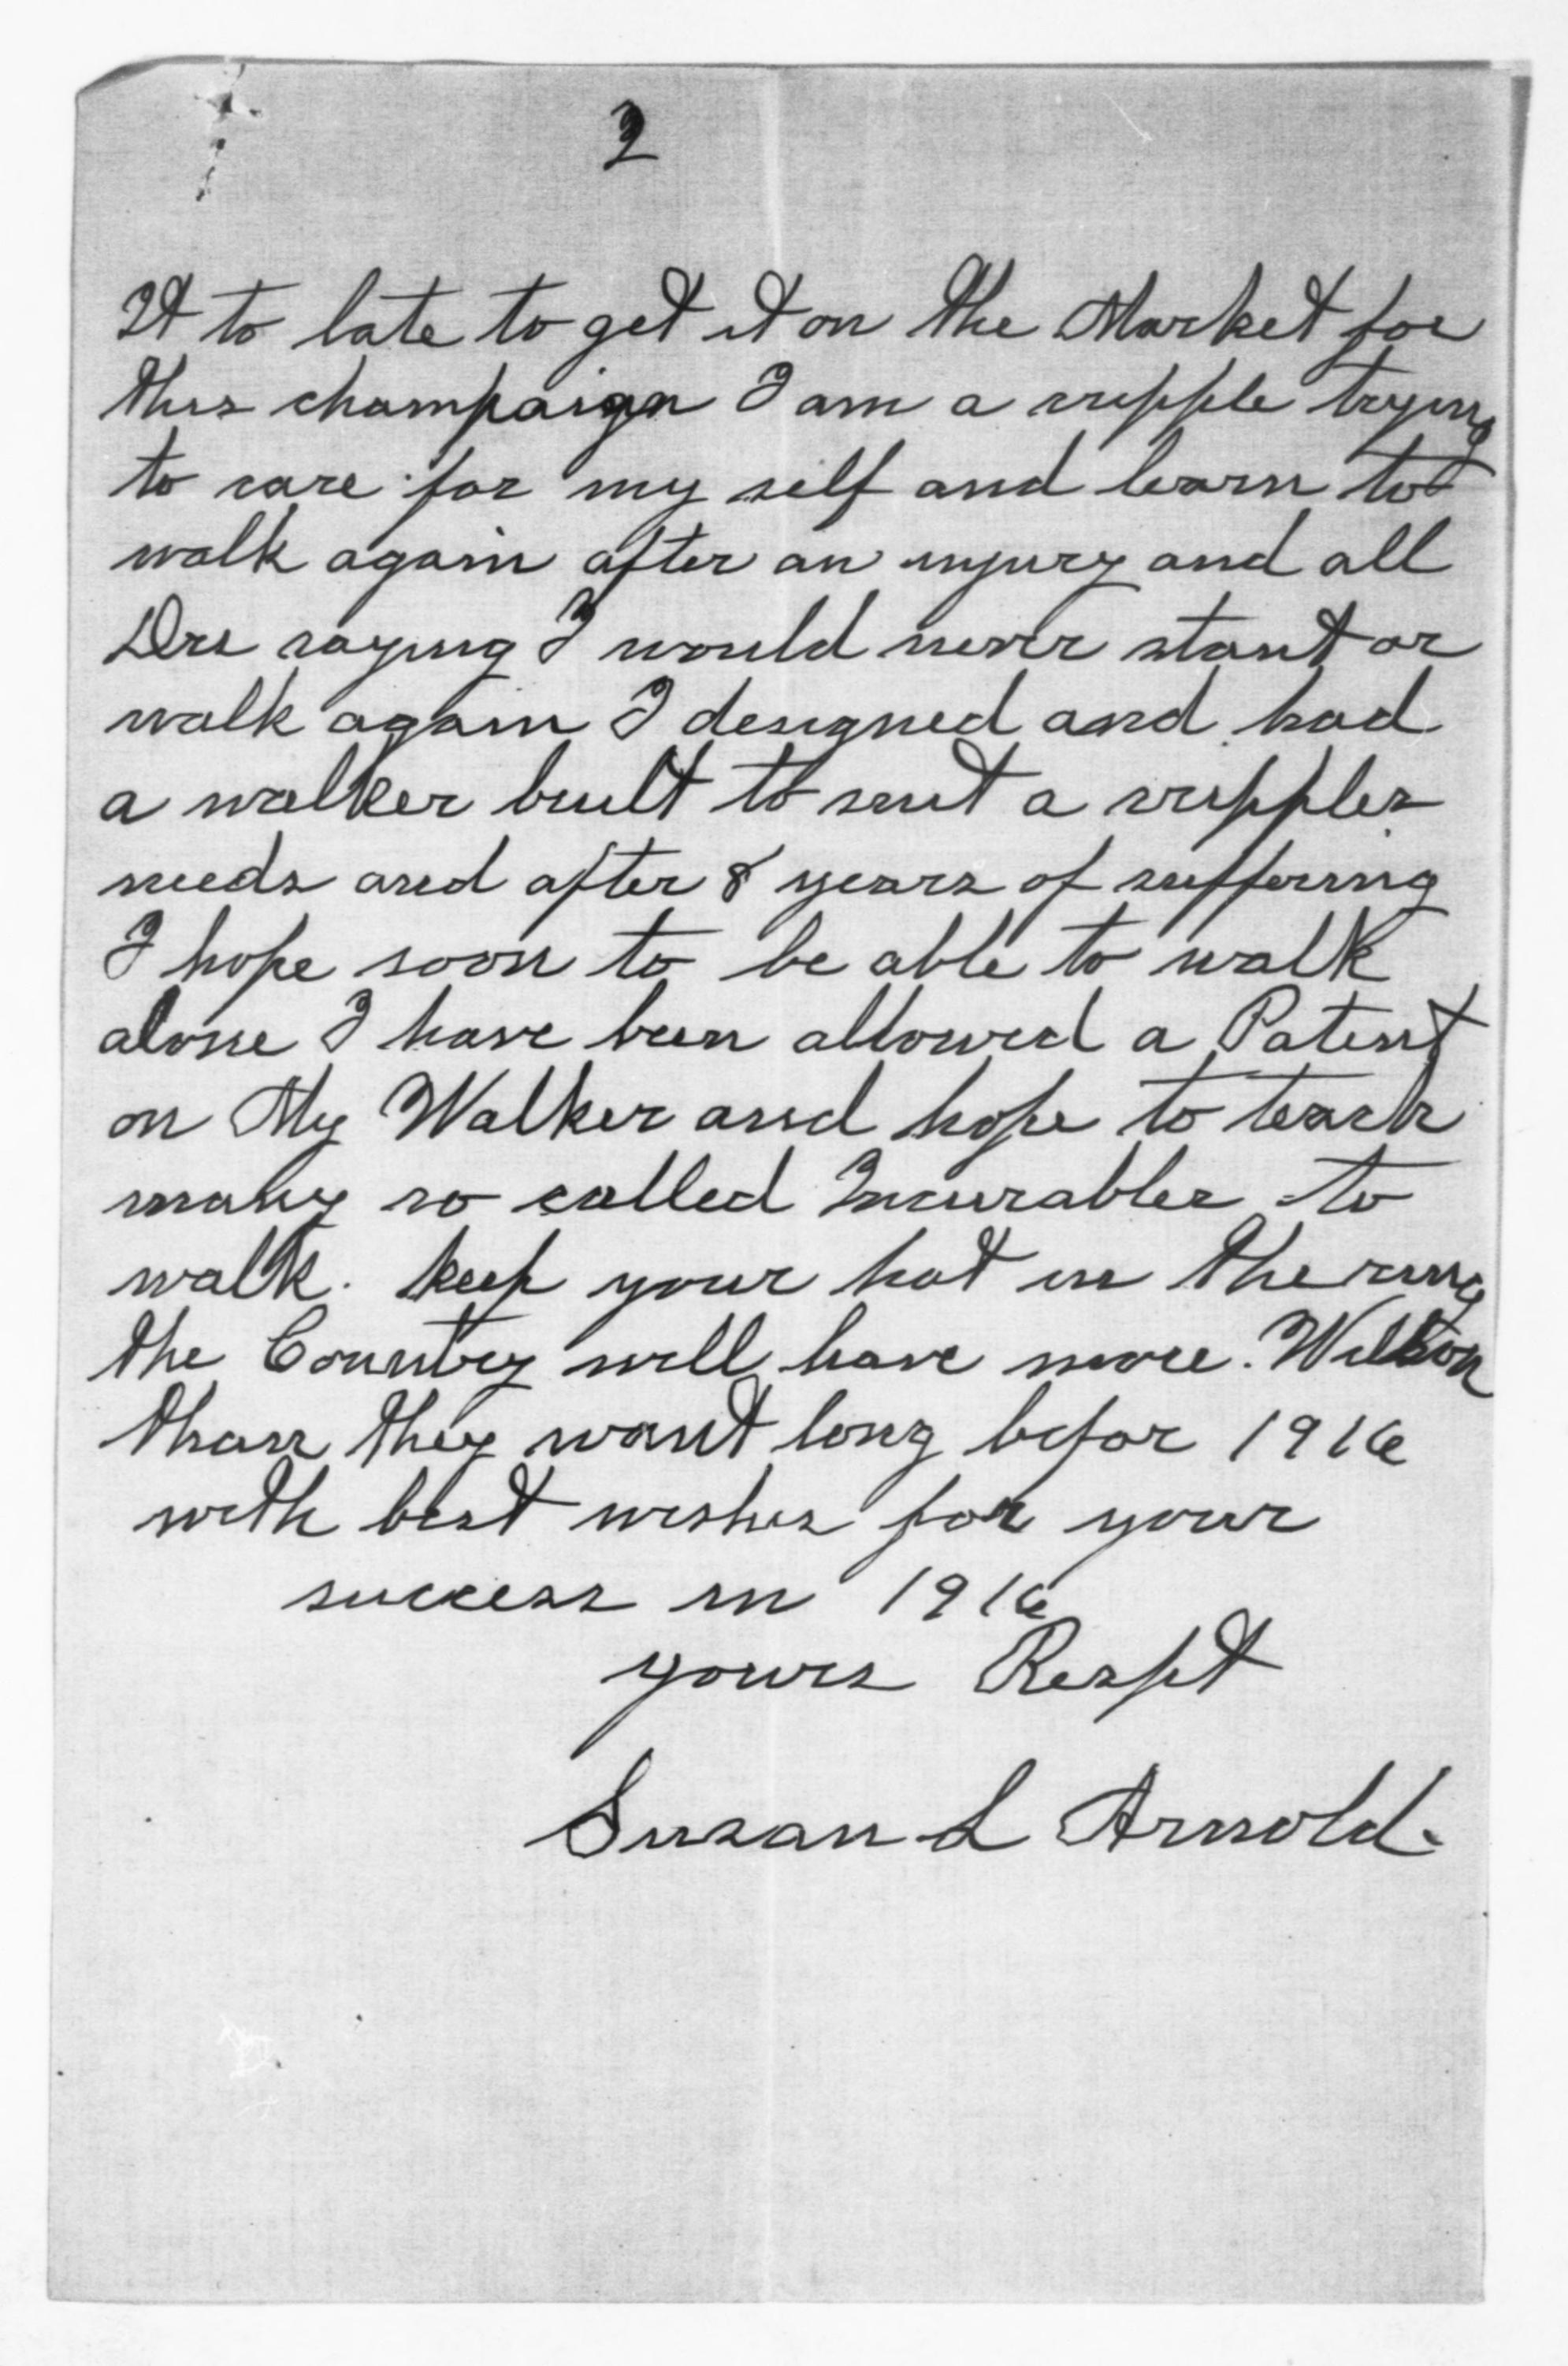 2
It to late to get it on the Market for
this champaign I am a cripple trying
to care for my self and learn to
walk again after an injury and all
Drs saying I would never stant or
walk again I designed and had
a walker built to suit a cripples
needs and after 8 years of suffering
I hope soon to be able to walk
alone I have been allowed a Patent
on My Walker and hope to teach
many so called Incurables to
walk. keep your hat in the ring
the Country will have more. Wilson
than they want long befor 1916
with best wishes for your
success in 1916
yours Respt
Susan L Arnold.